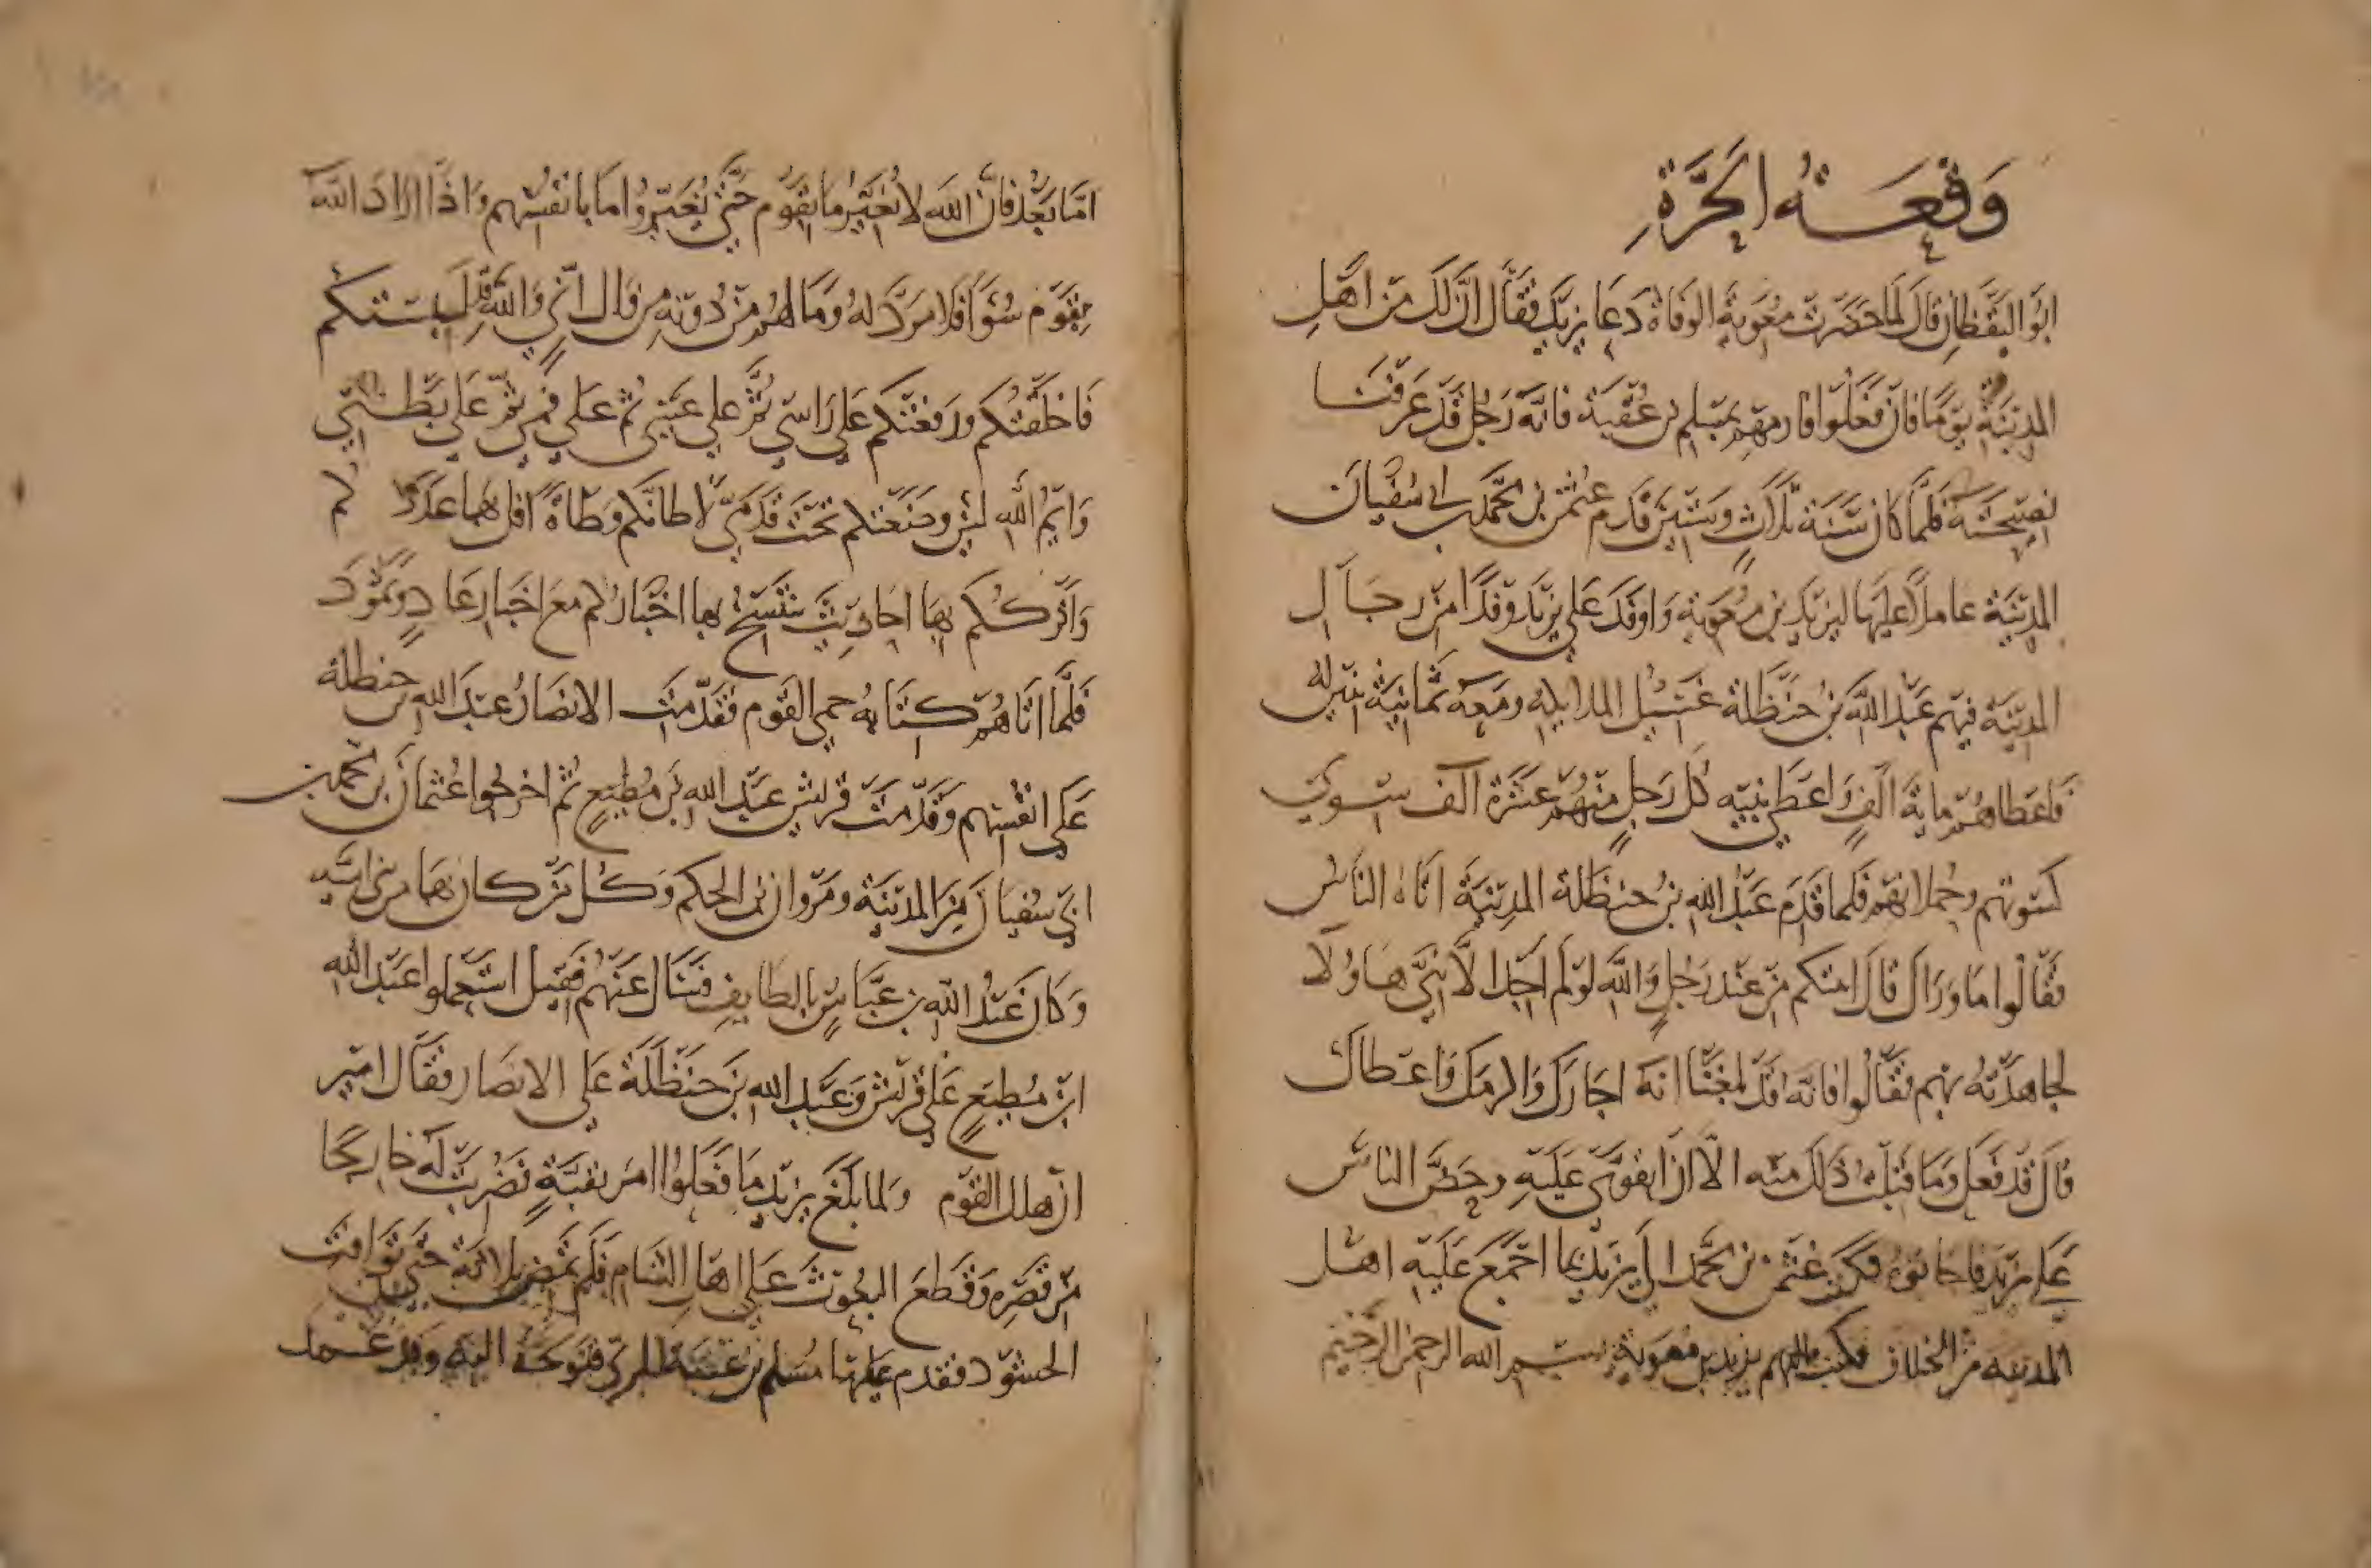 وَقْعَةُ الحَرَّةِ
ابو اليقظان قال لما حضرت معوية الوفاة دعا يزيد فقال ان لك من اهل
المدينة يوما فان فعلوا فارمهم بمسلم بن عقبة فانه رجل قد عرفنا
نصيحته فلما كان سنة ثلاث وستين قدم عثمن بن محمد بن ابي سفيان
المدينة عاملا عليها ليزيد بن معوية واوفد على يزيد وفدا من رجال
المدينة فيهم عبد الله بن حنظلة غسيل الملايكه ومعه ثمانية بنين له
فاعطاهم ماية الف واعطى بنيه كل رجل منهم عشرة الف سوى
كسوتهم وحملانهم فلما قدم عبد الله بن حنظلة المدينة اتاه الناس
فقالوا ما وراك قال اتيتكم من عند رجل والله لو لم اجد الا بني هاولا
لجاهدته بهم فقالوا فانه قد بلغنا انه اجازك واكرمك واعطاك
قال قد فعل وما قبلت ذلك منه الا ان اتقوى عليه وحض الناس
على يزيد فاجابوه فكتب عثمن بن محمد الى يزيد بما اجمع عليه اهل
المدينة من الخلاف فكتب اليهم يزيد بن معوية بسم الله الرحمن الرحيم
اما بعد فان الله لا يغير ما بقوم حتى يغيروا ما بانفسهم واذا اراد الله
بقوم سوءا فلا مرد له وما لهم من دونه من وال اني والله قد لبستكم
فاخلقتكم ورفعتكم على راسي ثم على عيني ثم على فمي ثم على بطني
وايم الله لئن وضعتكم تحت قدمي لاطانكم وطاة اقل بها عددكم
واترككم بها احاديث تنتسخ بها اخباركم مع اخبار عاد وثمود
فلما اتاهم كتابه حمي القوم فقدمت الانصار عبد الله بن حنظلة
على انفسهم وقدمت قريش عبد الله بن مطيع ثم اخرجوا عثمان بن محمد بن
ابي سفيان من المدينة ومروان بن الحكم وكل من كان بها من بني امية
وكان عبد الله بن عباس بالطايف فسال عنهم فقيل استعملوا عبد الله
ابن مطيع على قريش وعبد الله بن حنظلة على الانصار فقال اميران
هلك القوم ولما بلغ يزيد ما فعلوا امر بقبة فضربت له خارجا
من قصره وقطع البعوث على اهل الشام فلم تمض ثالثة حتى توافت
الحشود فقدم عليها مسلم بن عقبة المري فتوجه اليهم وقد عمد